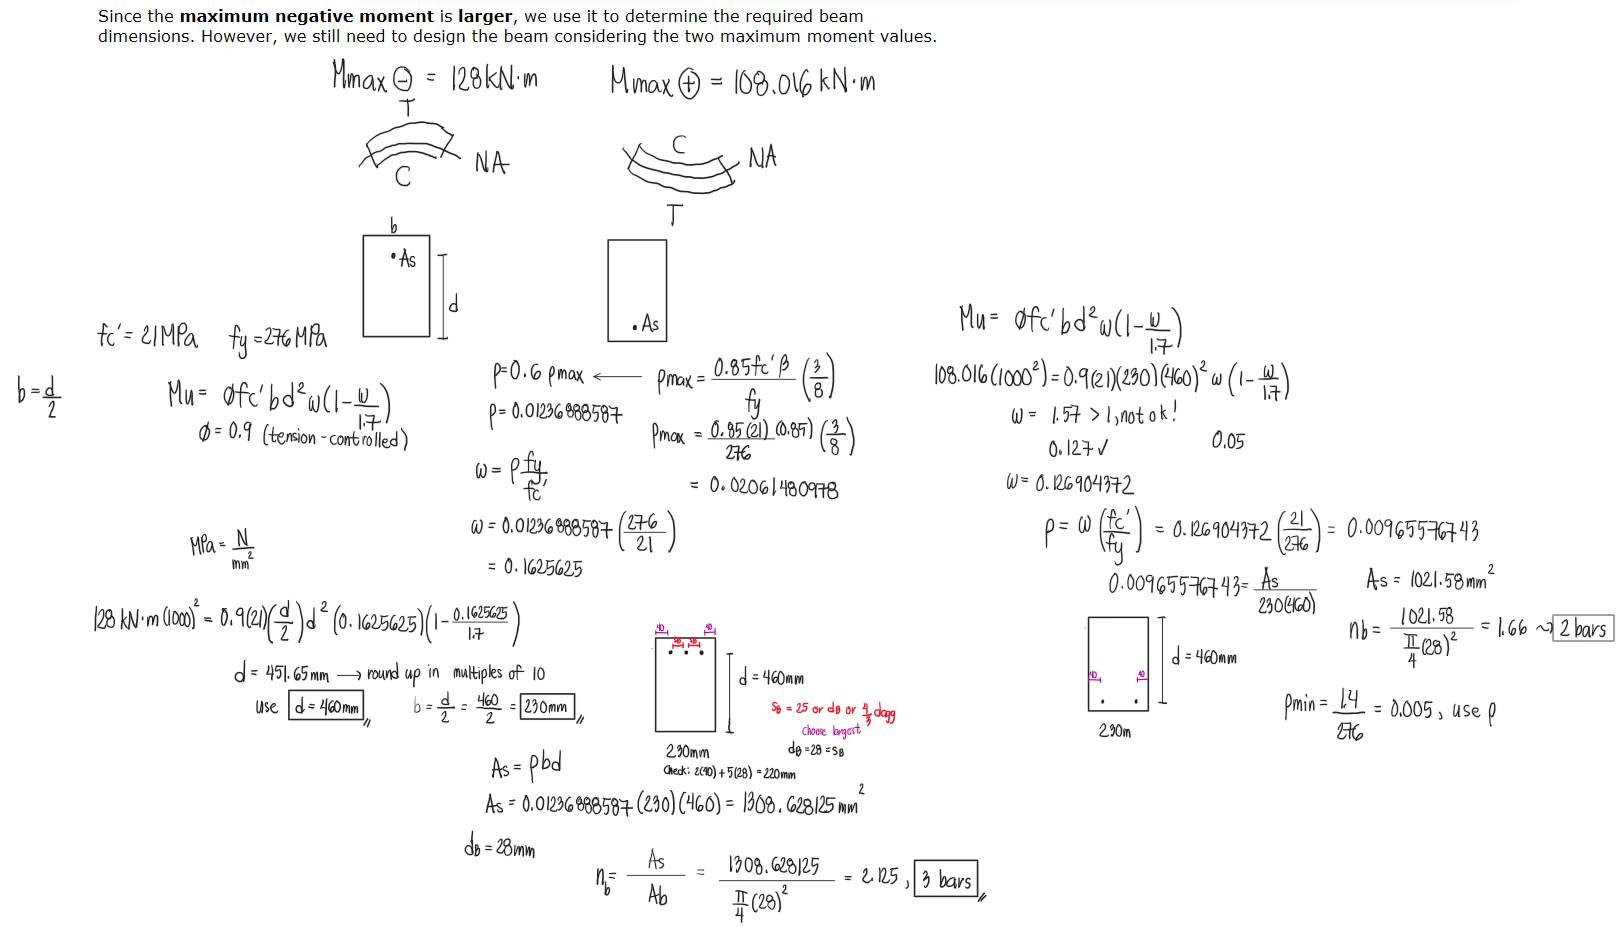 Since the maximum negative moment is larger, we use it to determine the required beam
dimensions. However, we still need to design the beam considering the two maximum moment values.
Mmax ⊖ = 128kN·m
T
C
NA
b
As
d
Mmax ⊕ = 108.016 kN·m
C
NA
T
As
fc' = 21MPa fy = 276 MPa
b = d/2
Mu = Øfc'bd²ω(1-ω/1.7)
Ø = 0.9 (tension-controlled)
ρ=0.6 ρmax ← ρmax = 0.85fc'β/fy (3/8)
ρ= 0.01236888587
ρmax = 0.85(21)(0.85)/276 (3/8)
= 0.02061480978
ω = ρ fy/fc'
ω = 0.01236888587 (276/21)
= 0.1625625
MPa = N/mm²
128 kN·m (1000)² = 0.9(21)(d/2)d²(0.1625625)(1-0.1625625/1.7)
d = 451.65mm → round up in multiples of 10
use d = 460mm
b = d/2 = 460/2 = 230mm
40 40
d = 460mm
230mm
sB = 25 or dB or 4/3 dagg
choose largest
dB = 28 = sB
Check: 2(40) + 5(28) = 220mm
As = ρbd
As = 0.01236888587 (230)(460) = 1308.628125 mm²
dB = 28mm
nb = As/Ab = 1308.628125/(π/4 (28)²) = 2.125, 3 bars
Mu = Øfc'bd²ω(1-ω/1.7)
108.016(1000²) = 0.9(21)(230)(460)²ω(1-ω/1.7)
ω = 1.57 >1, not ok!
0.127✓
0.05
ω = 0.126904372
ρ = ω (fc'/fy) = 0.126904372 (21/276) = 0.00965576743
0.00965576743 = As/230(460)
As = 1021.58mm²
nb = 1021.58/(π/4 (28)²) = 1.66 ~ 2 bars
40 40
d = 460mm
230m
ρmin = 1.4/276 = 0.005, use ρ